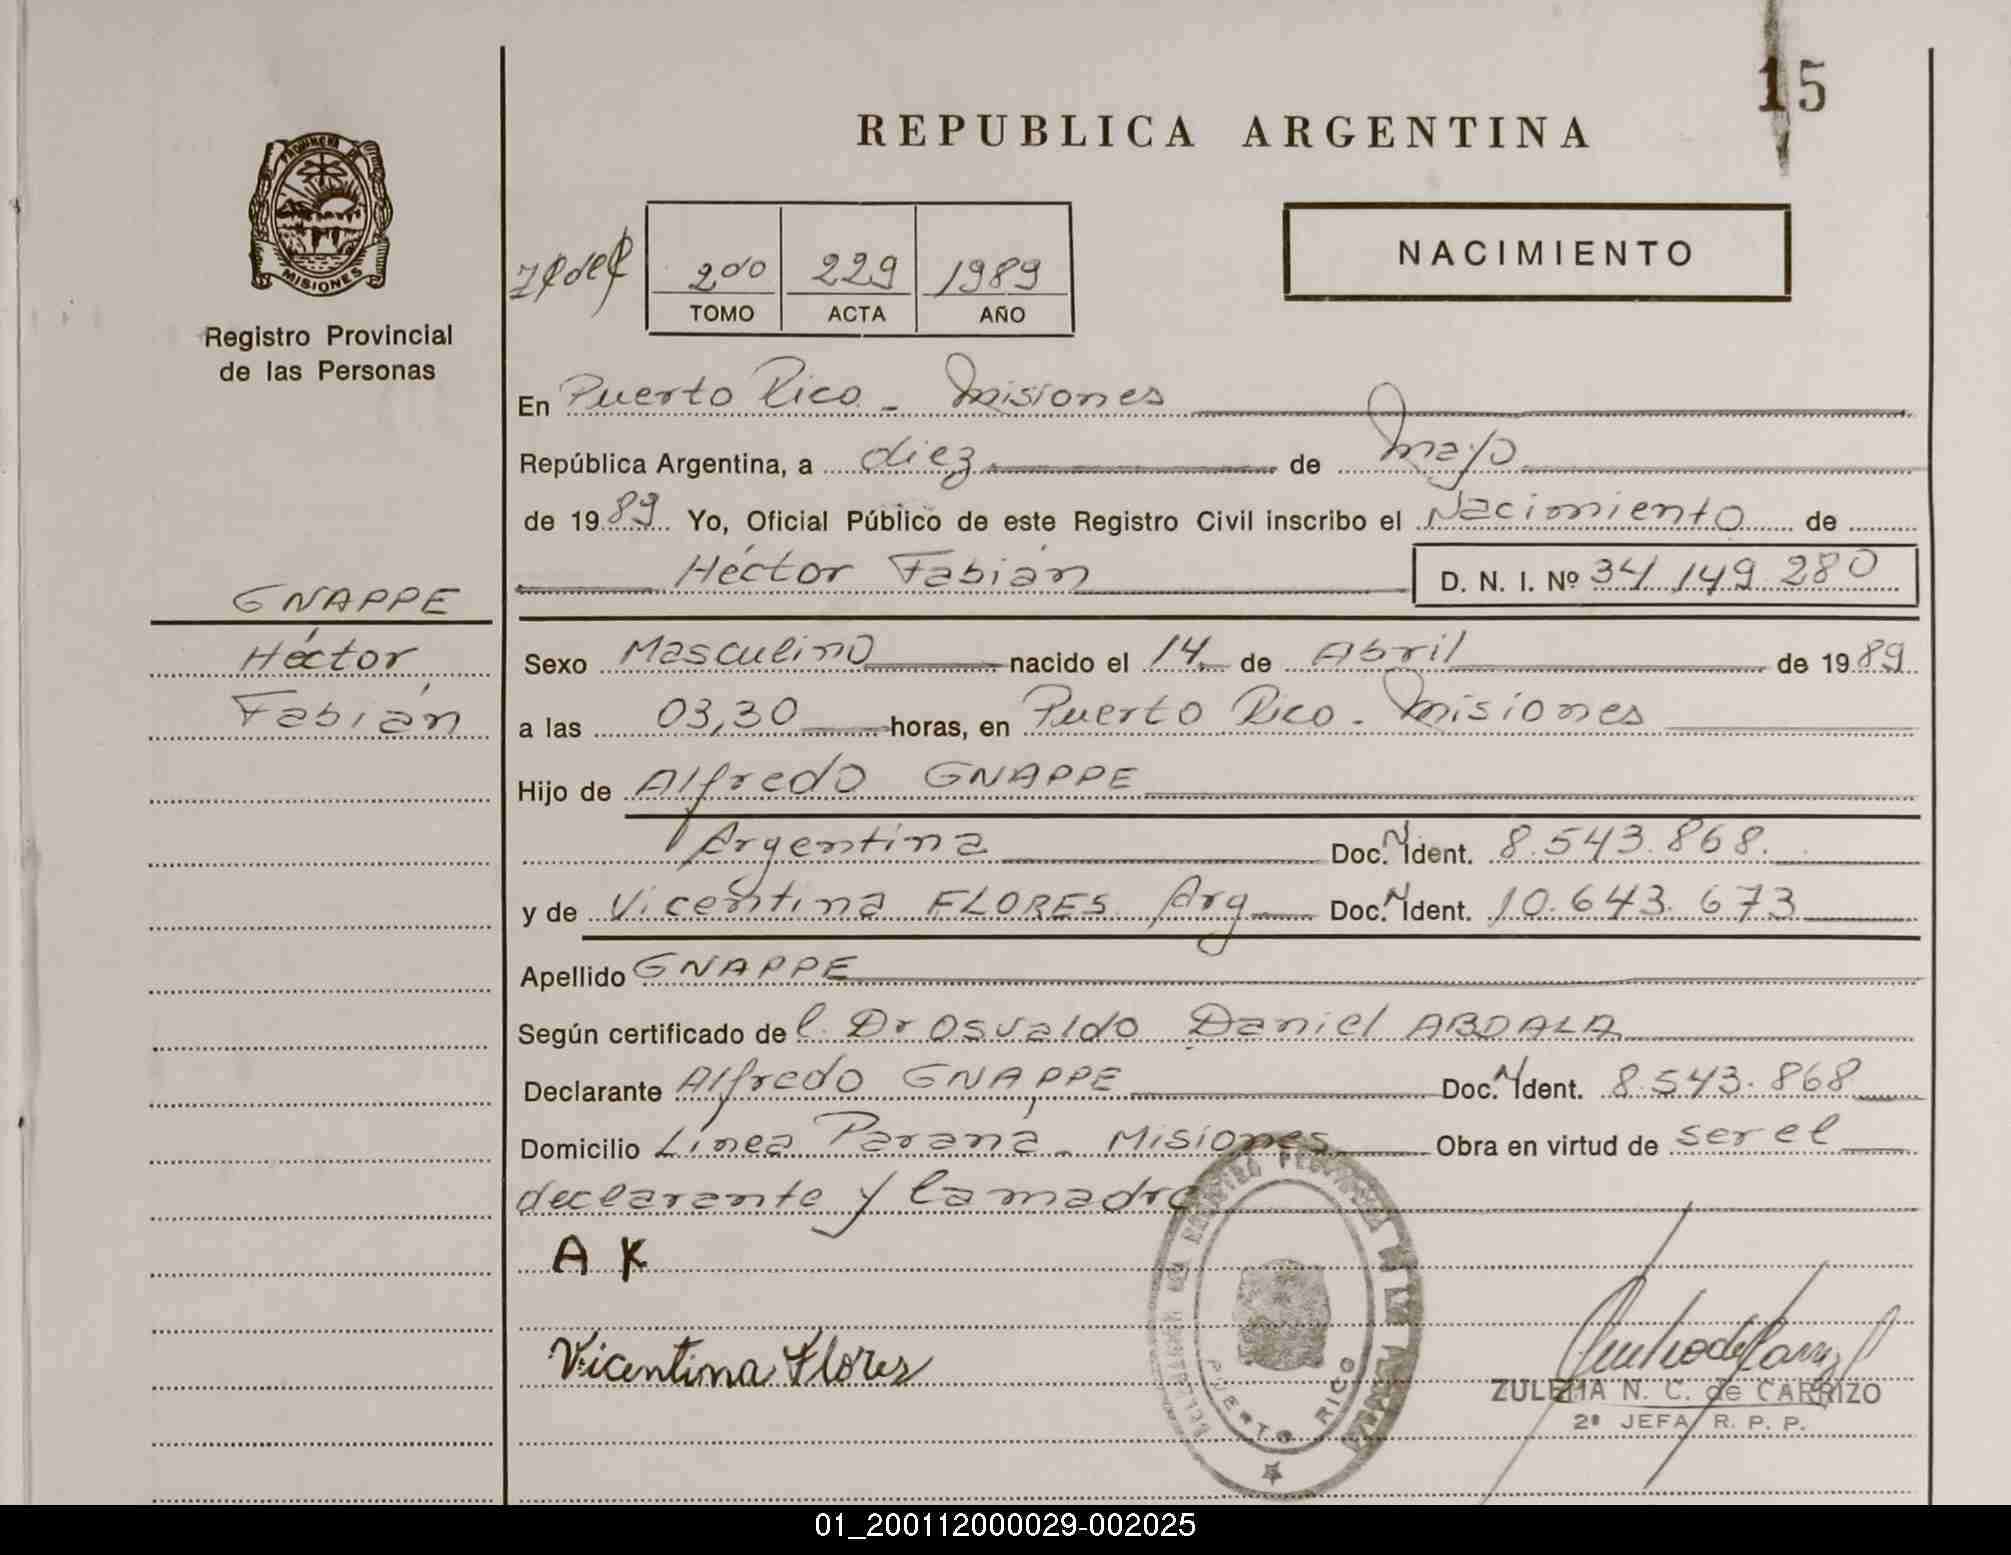 15
REPUBLICA ARGENTINA
PROVINCIA DE
MISIONES
Registro Provincial
de las Personas
2do 229 1989
TOMO ACTA AÑO
NACIMIENTO
En Puerto Rico - Misiones
República Argentina, a diez de Mayo
de 1989 Yo, Oficial Público de este Registro Civil inscribo el Nacimiento de
Héctor Fabián D. N. I. Nº 34.149.280
GNAPPE
Héctor
Fabián
Sexo Masculino nacido el 14 de Abril de 1989
a las 03,30 horas, en Puerto Rico - Misiones
Hijo de Alfredo GNAPPE
Argentina Doc. N Ident. 8.543.868.
y de Vicentina FLORES Arg Doc. N Ident. 10.643.673
Apellido GNAPPE
Según certificado del Dr Osvaldo Daniel ABDALA
Declarante Alfredo GNAPPE Doc. N Ident. 8.543.868
Domicilio Línea Paraná - Misiones Obra en virtud de ser el
declarante y la madre
A K
Vicentina Flores
PUERTO RICO
ZULEMA N. C. de CARRIZO
2ª JEFA R. P. P.
01_200112000029-002025